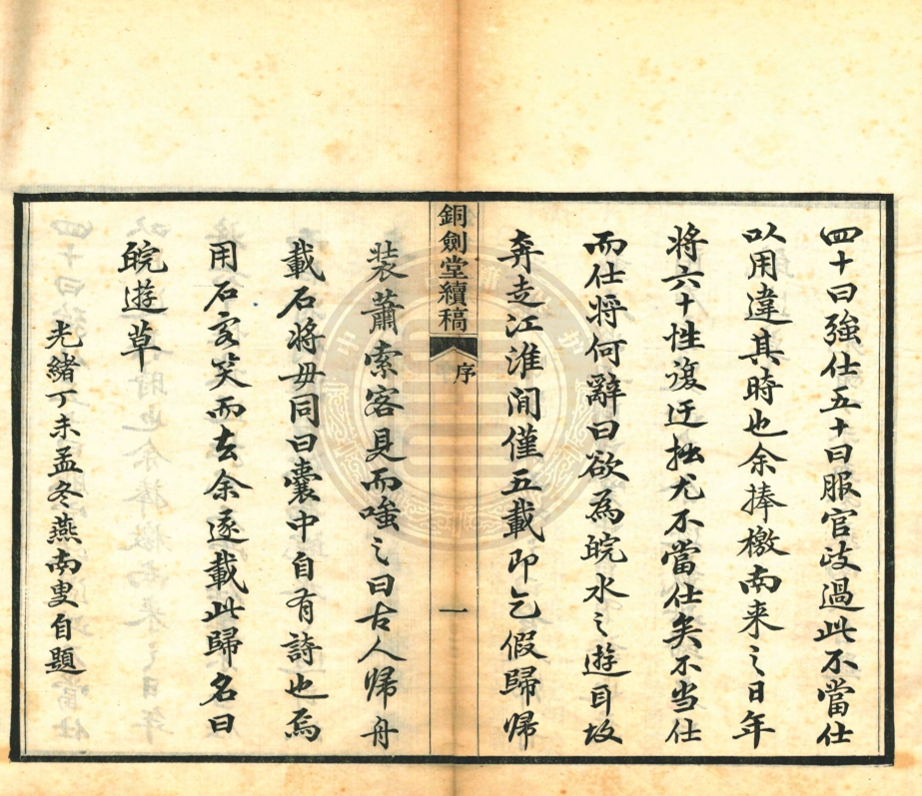 四十曰強仕五十曰服官歧過此不當仕
以用違其時也余捧檄南来之日年
将六十性復迂拙尤不當仕矣不当仕
而仕将何辭曰欲為皖水之遊耳故
奔走江淮間僅五載即乞假歸歸
銅劍堂續稿
序
一
装蕭索客見而嗤之曰古人歸舟
載石将毋同曰囊中自有詩也焉
用石客笑而去余遂載此歸名曰
皖遊草
光緒丁未孟冬燕南叟自題